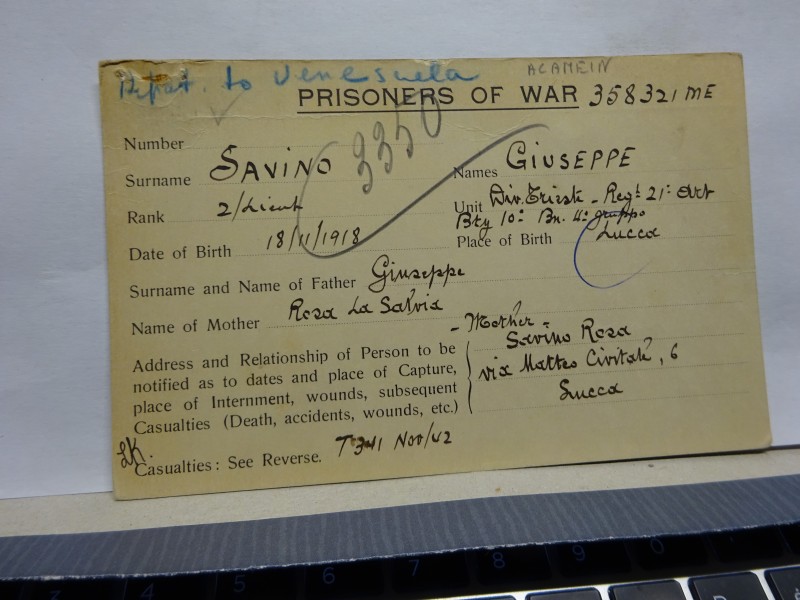 Repat. to Venesuela
ACAMEIN
PRISONERS OF WAR 358321 ME
Number
3350
Surname SAVINO Names GIUSEPPE
Rank 2/Lieut Unit Div. Trieste - Regt 21° Art
Bty 10° Bn. II° gruppo
Date of Birth 18/11/1918 Place of Birth Lucca
Surname and Name of Father Giuseppe
Name of Mother Rosa La Salvia
Address and Relationship of Person to be
notified as to dates and place of Capture,
place of Internment, wounds, subsequent
Casualties (Death, accidents, wounds, etc.)
- Mother -
Savino Rosa
via Matteo Civitali, 6
Lucca
Casualties: See Reverse. T341 Nov/42
4 5 6 7 8 9 0